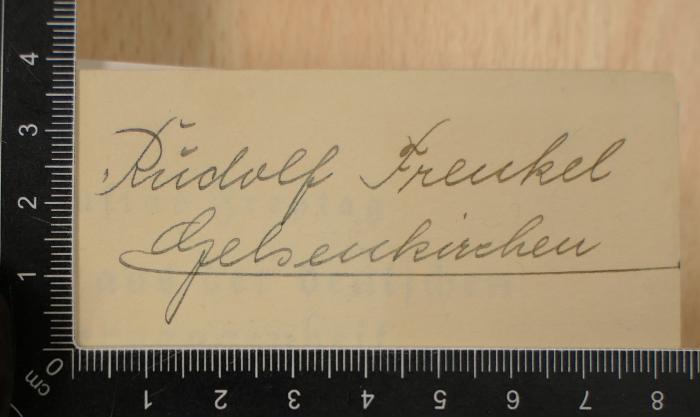 Rudolf Frenkel
Gelsenkirchen
4
3
2
1
0
cm
1 2 3 4 5 6 7 8